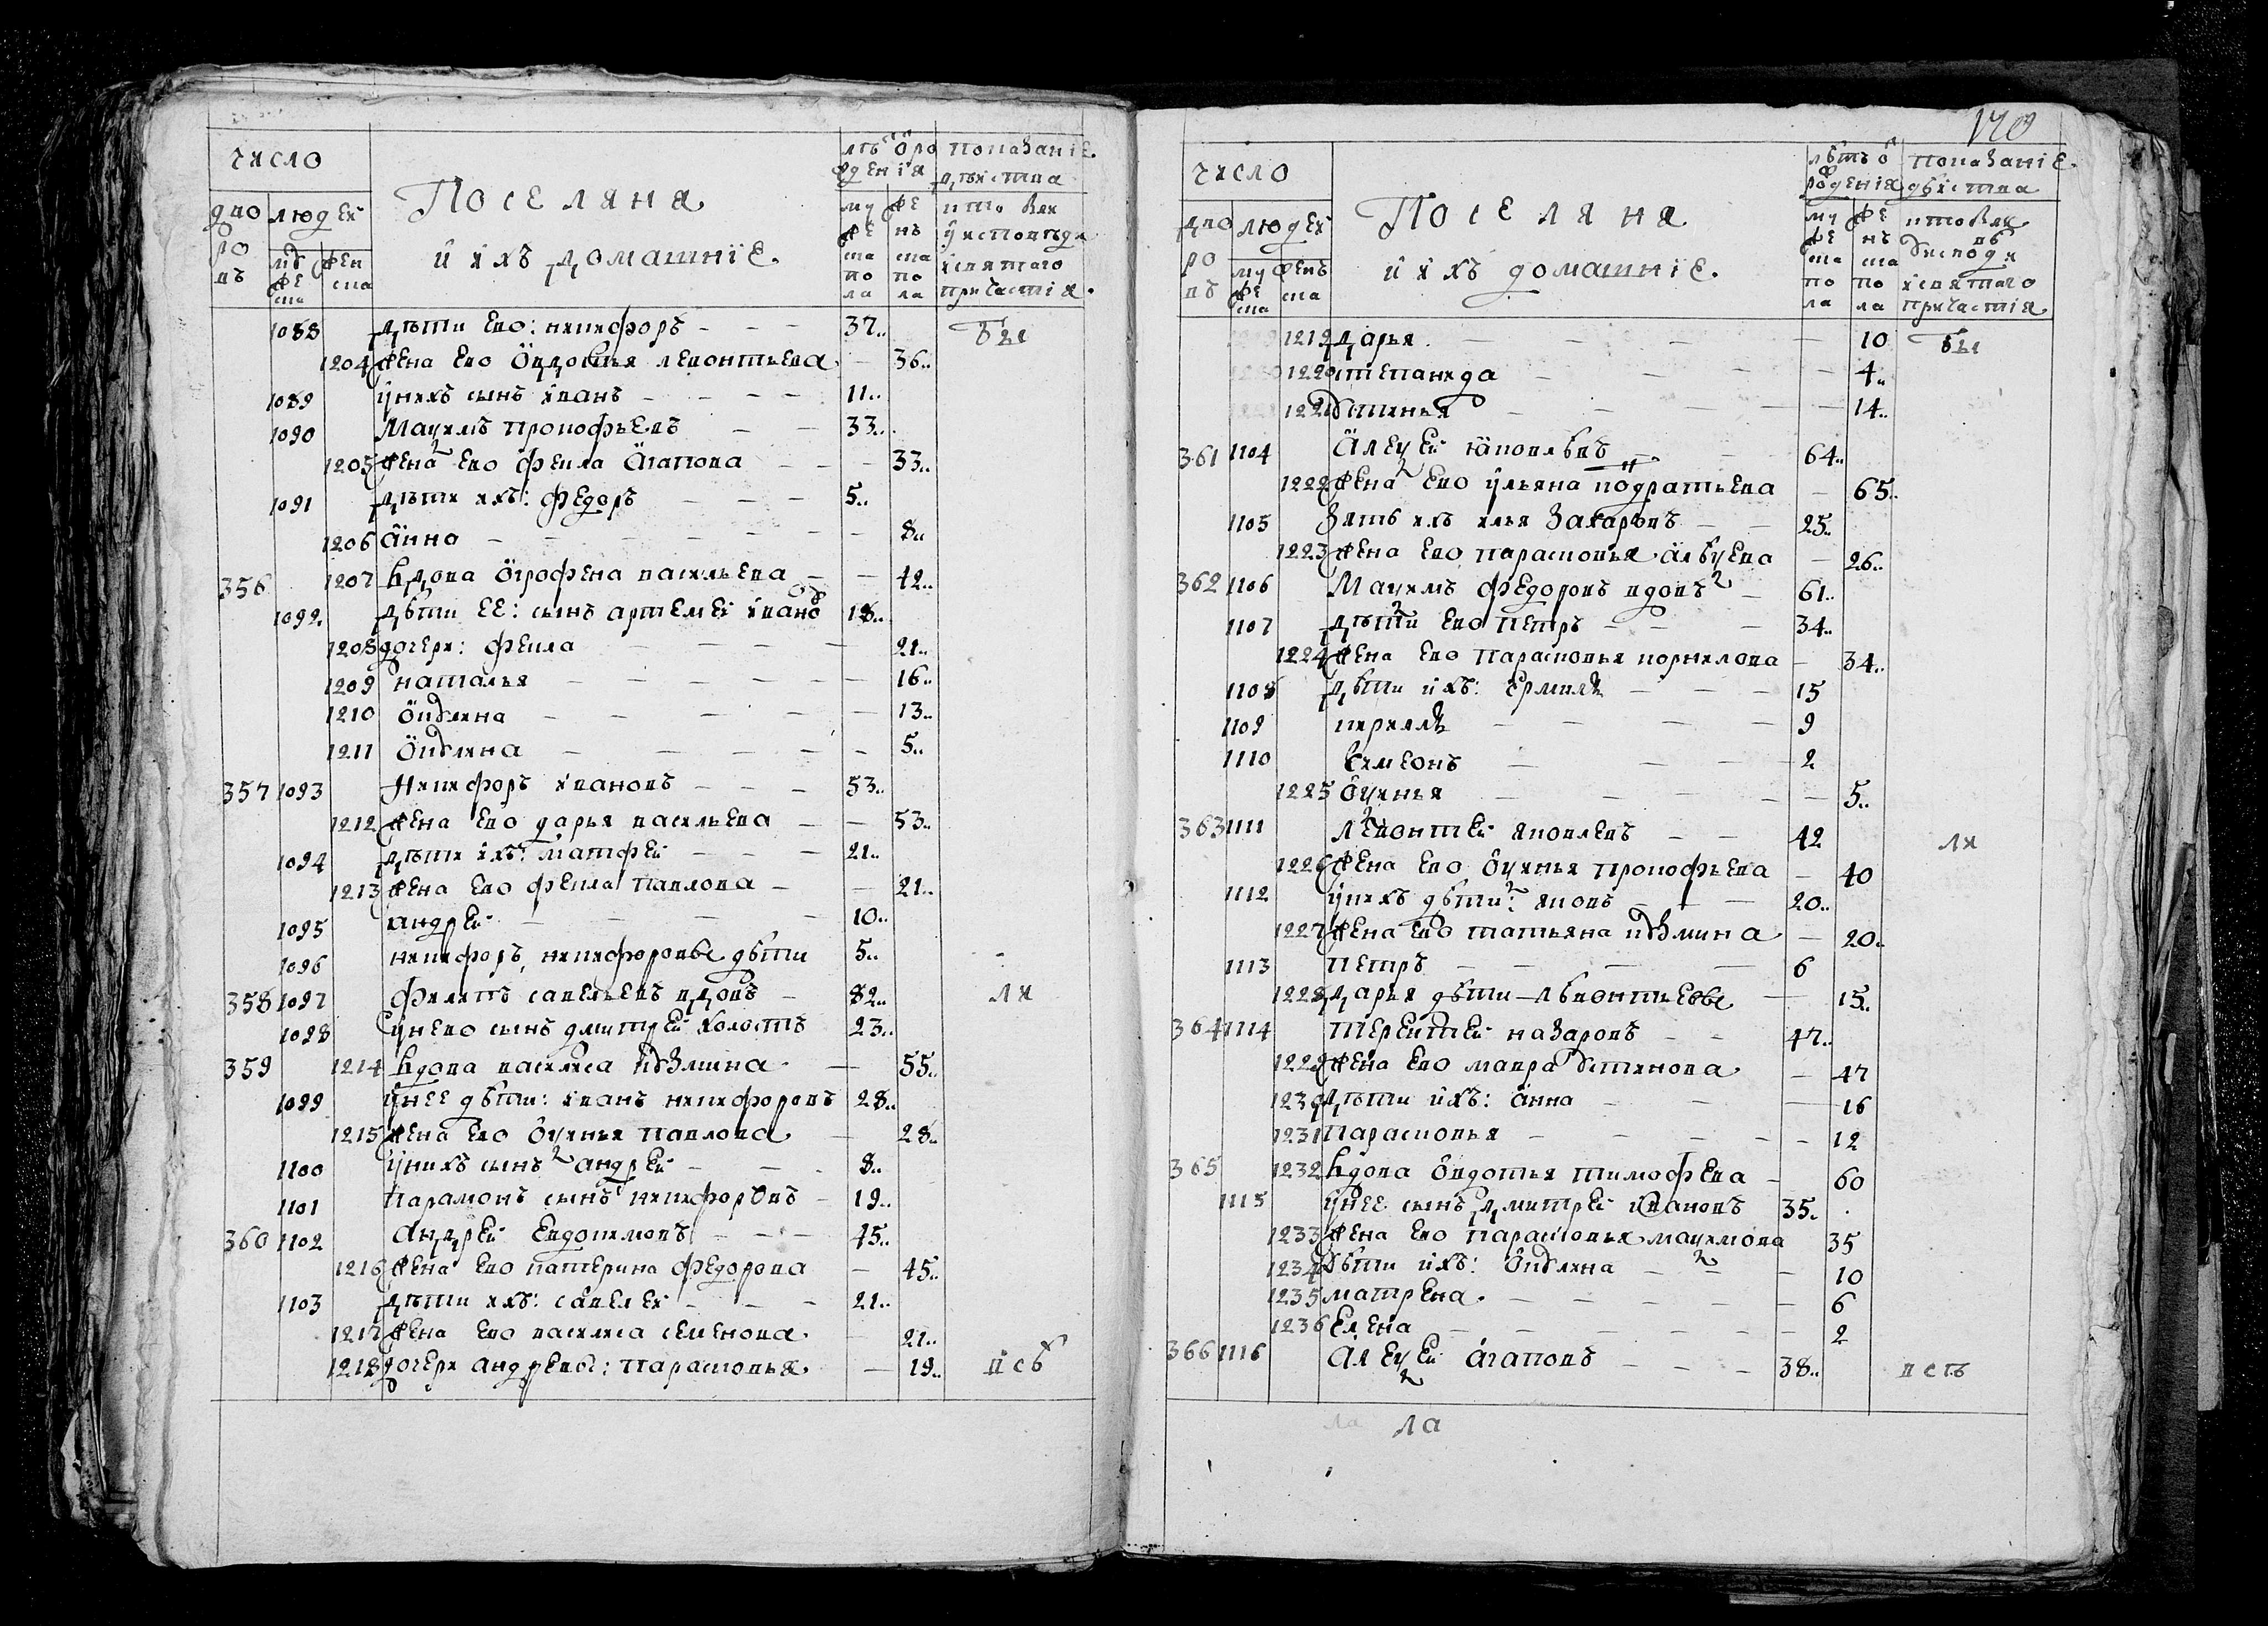 число
Поселяна
и ихъ домашнїе.
лѣтъ ѿ ро
жденїя
показанїе
дѣиства
дворовъ
людеи
мужеска
женска
мужеска пола
женска пола
кто был
у исповѣди
и святаго
причастия.
1088 дѣти ево: никифоръ 37.. был
1204 жена ево овдотья левонтьева 36..
1089 у нихъ сынъ иванъ 11..
1090 Маѯимъ прокофьевъ 33..
1205 жена ево фекла агапова 33..
1091 дѣти ихъ: федоръ 5..
1206 анна 8..
356 1207 вдова огрофена васильева 42..
1092 дѣти ее: сынъ артемеи иванов 18..
1208 дочери: фекла 21..
1209 наталья 16..
1210 окулина 13..
1211 окулина 5..
357 1093 Никифоръ ивановъ 53..
1212 жена ево дарья васильева 53..
1094 дѣти ихъ: матфей 21..
1213 жена ево фекла павлова 21..
1095 андрей 10..
1096 никифоръ, никифоровы дѣти 5..
358 1097 филипъ савельевъ вдовъ 82.. ли
1098 у нево сынъ дмитрей холостъ 23..
359 1214 вдова василиса кузмина 55..
1099 у нее дѣти: иванъ никифоровъ 28..
1215 жена ево оѯинья павлова 28..
1100 у нихъ сынъ андрей 8..
1101 парамонъ сынъ никифоровъ 19..
360 1102 Андрей евдокимовъ 45..
1216 жена ево катерина федорова 45..
1103 дѣти ихъ: савелеи 21..
1217 жена ево василиса семенова 21..
1218 дочери андреевы: парасковья 19.. всѣ
170
число
Поселяна
и ихъ домашнїе.
лѣтъ ѿ
рожденїя
показанїе
дѣиства
дворовъ
людеи
мужеска
женска
мужеска пола
женска пола
кто был
у исповѣди
и святаго
причастия
1219 дарья 10 был
1220 степанида 4..
1221 устинья 14..
361 1104 Алеѯей яковлѣвъ 64..
1222 жена ево ульяна кодратьева 65..
1105 Зять ихъ илья Захаровъ 25..
1223 жена ево парасковья алѣѯева 26..
362 1106 Маѯимъ федоровъ вдовъ 61..
1107 дѣти ево петръ 34..
1224 жена ево парасковья корнилова 34..
1108 дѣти ихъ: ермилъ 15
1109 кирилъ 9
1110 симеонъ 2
1225 оѯинья 5..
363 1111 левонтей яковлевъ 42 ли
1226 жена ево оѯинья прокофьева 40
1112 у нихъ дѣти: яковъ 20..
1227 жена ево татьяна кузмина 20..
1113 петръ 6
1228 дарья дѣти лѣвонтьевы 15..
364 1114 терентей назаровъ 47..
1229 жена ево мавра устинова 47
1230 дѣти ихъ: анна 16
1231 парасковья 12
365 1232 вдова овдотья тимофеева 60
1115 у нее сынъ дмитрей ивановъ 35.
1233 жена ево парасковья маѯимова 35
1234 дѣти ихъ: окулина 10
1235 матрена 6
1236 елена 2
366 1116 Алеѯей агаповъ 38.. всѣ
ла